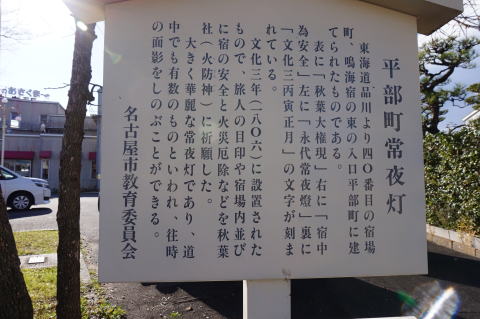 平部町常夜灯
東海道品川より四〇番目の宿場
町、鳴海宿の東の入口平部町に建
てられたものである。
表に「秋葉大権現」右に「宿中
為安全」左に「永代常夜燈」裏に
「文化三丙寅正月」の文字が刻ま
れている。
文化三年(一八〇六)に設置された
もので、旅人の目印や宿場内並び
に宿の安全と火災厄除などを秋葉
社(火防神)に祈願した。
大きく華麗な常夜灯であり、道
中でも有数のものといわれ、往時
の面影をしのぶことができる。
名古屋市教育委員会